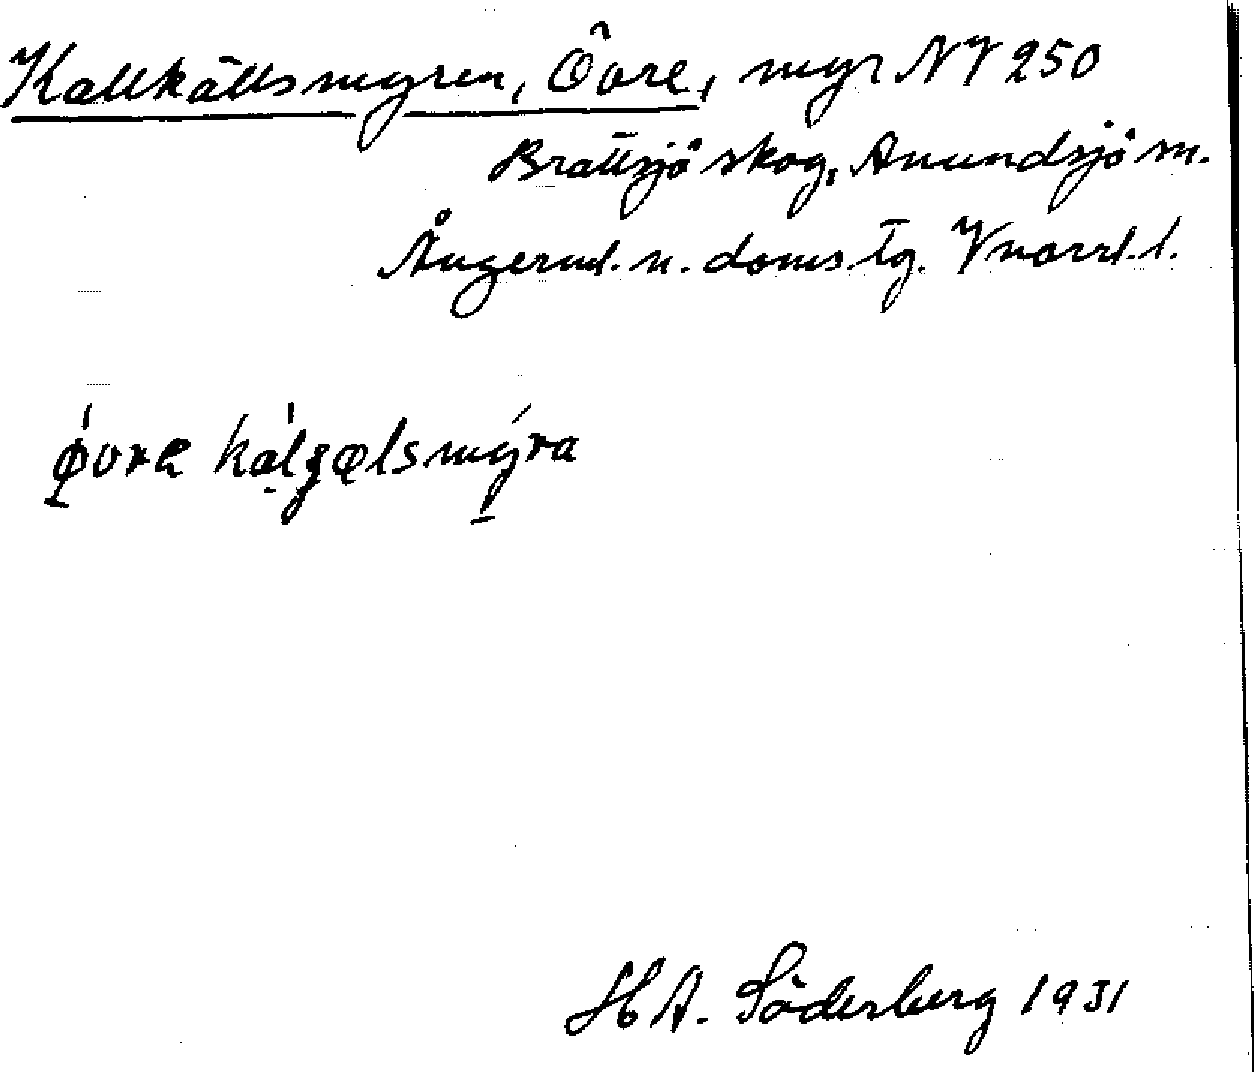 Kallkällsmyren, Övre, myr NV 250
Brattsjö skog, Anundsjö sn.
Ångerml. n. doms. tg. Vnorrl. l.
øvre kálʒælsmýra
H A. Söderberg 1931